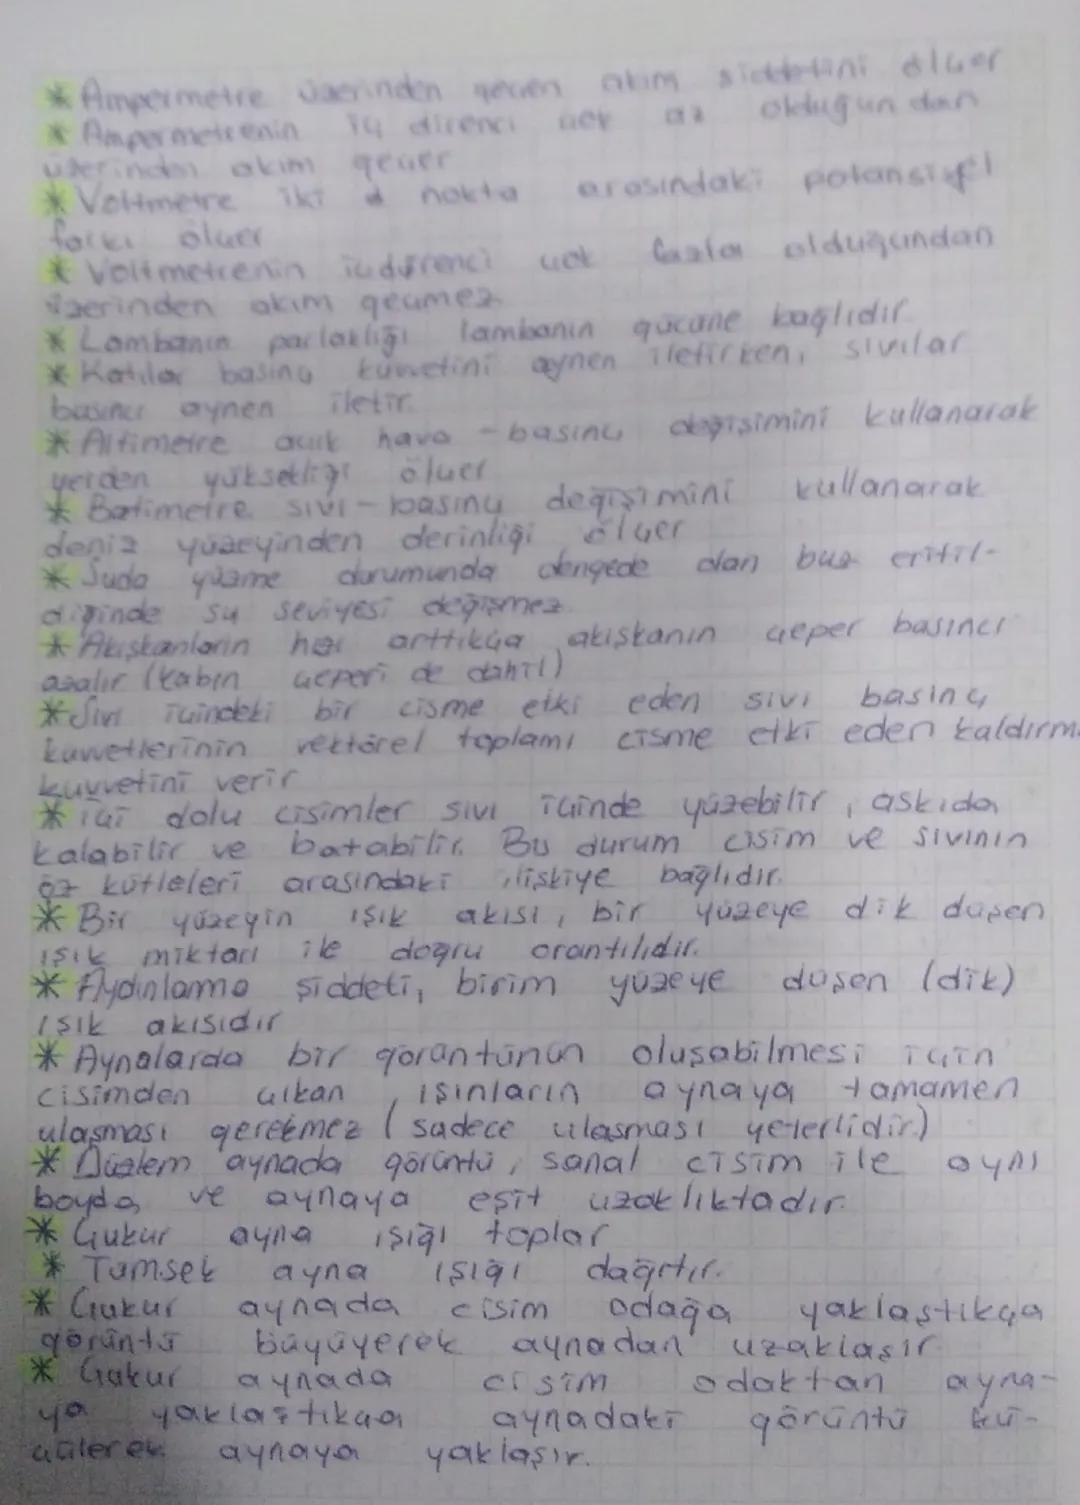 * Ampermetre üzerinden geçen akım şiddetini ölçer
* Ampermetrenin iç direnci çok az olduğundan
üzerinden akım geçer
* Voltmetre iki nokta arasındaki potansiyel
farkı ölçer
* Voltmetrenin iç direnci çok fazla olduğundan
üzerinden akım geçmez
* Lambanın parlaklığı lambanın gücüne bağlıdır.
* Katılar basınç kuvvetini aynen iletirken, sıvılar
basıncı aynen iletir.
* Altimetre açık hava - basınç değişimini kullanarak
yerden yüksekliği ölçer
* Batimetre sıvı - basınç değişimini kullanarak
deniz yüzeyinden derinliği ölçer
* Suda yüzme durumunda dengede olan buz eritil-
diğinde su seviyesi değişmez.
* Akışkanların hızı arttıkça, akışkanın çeper basıncı
azalır (kabın çeperi de dahil)
* Sıvı içindeki bir cisme etki eden sıvı basınç
kuvvetlerinin vektörel toplamı cisme etki eden kaldırma
kuvvetini verir
* içi dolu cisimler sıvı içinde yüzebilir, askıda
kalabilir ve batabilir. Bu durum cisim ve sıvının
öz kütleleri arasındaki ilişkiye bağlıdır.
* Bir yüzeyin ışık akısı, bir yüzeye dik düşen
ışık miktarı ile doğru orantılıdır.
* Aydınlanma şiddeti, birim yüzeye düşen (dik)
ışık akısıdır
* Aynalarda bir görüntünün oluşabilmesi için
cisimden çıkan ışınların aynaya tamamen
ulaşması gerekmez (sadece ulaşması yeterlidir.)
* Düzlem aynada görüntü, sanal cisim ile aynı
boyda ve aynaya eşit uzaklıktadır.
* Çukur ayna ışığı toplar
* Tümsek ayna ışığı dağıtır.
* Çukur aynada cisim odağa yaklaştıkça
görüntü büyüyerek aynadan uzaklaşır.
* Çukur aynada cisim odaktan ayna-
ya yaklaştıkça aynadaki görüntü kü-
çülerek aynaya yaklaşır.